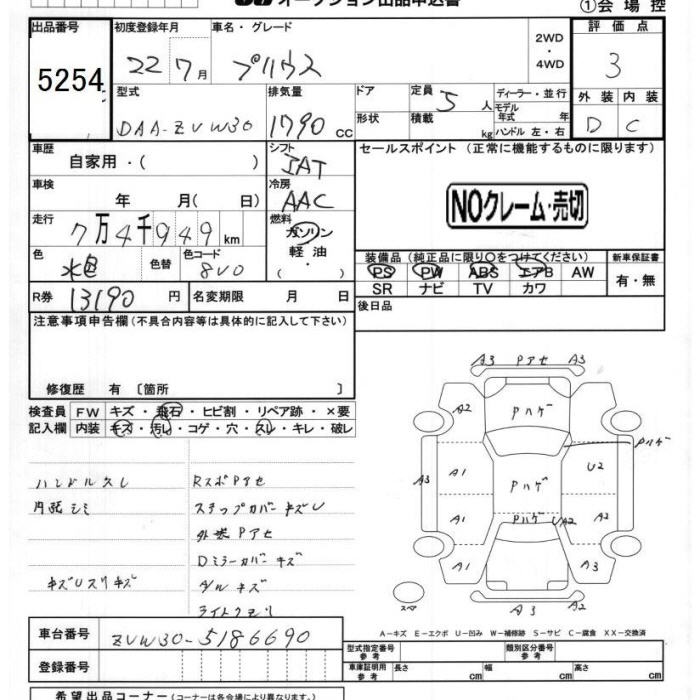 オークション出品申込書
①会場控
出品番号 初度登録年月 車名・グレード 2WD ・ 4WD 評価点
5254 22 7月 プリウス 3
型式 排気量 ドア 定員 5 人 ディーラー・並行 外装 内装
DAA-ZVW30 1790 cc 形状 積載 kg モデル年式 年 ハンドル 左・右 D C
車歴 自家用・( ) シフト IAT セールスポイント (正常に機能するものに限ります)
車検 年 月( 日) 冷房 AAC
NOクレーム・売切
走行 7万4千949km 燃料 ガソリン 軽油 ・
色 水色 色替 色コード 8V0
装備品 (純正品に限り○をつけてください) 新車保証書
PS PW ABS エアB AW 有・無
SR ナビ TV カワ
R券 13190 円 名変期限 月 日 後日品
注意事項申告欄(不具合内容等は具体的に記入して下さい)
修復歴 有 〔箇所 〕
検査員 FW キズ・飛石・ヒビ割・リペア跡・×要
記入欄 内装 キズ・汚し・コゲ・穴・スレ・キレ・破レ
ハンドルスレ RスポPアセ
内張シミ ステップカバーキズU
外装Pアセ
Dミラーカバーキズ
キズUスリキズ
ライトクモリ
A3 Pアセ A3
A2 Pハゲ
Pハゲ
A3 A1 Pハゲ U2
A1 Pハゲ UA2 A3
A1 A2
A3 A2
スペ
A-キズ E-エクボ U-凹み W-補修跡 S-サビ C-腐食 XX-交換済
車台番号 ZVW30-5186690
型式指定番号 参考 類別区分番号 参考
登録番号 車庫証明用 参考 長さ cm 幅 cm 高さ cm
希望出品コーナー(コーナーは各会場により異なります。)